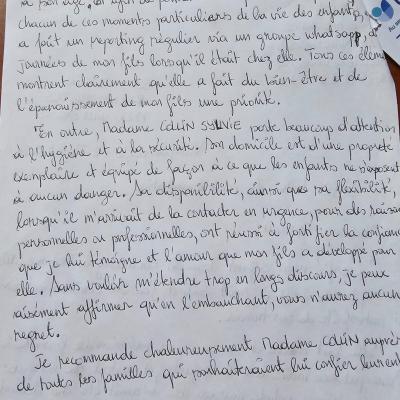 chacun de ces moments particuliers de la vie des enfants,
a fait un reporting régulier via un groupe whatsapp,
journées de mon fils lorsqu'il était chez elle. Tous ces élém
montrent clairement qu'elle a fait du bien-être et de
l'épanouissement de mon fils une priorité.
En outre, Madame COLIN SYLVIE porte beaucoup d'attention
à l'hygiène et à la sécurité. Son domicile est d'une propreté
exemplaire et équipé de façon à ce que les enfants ne s'exposent
à aucun danger. Sa disponibilité, ainsi que sa flexibilité,
lorsqu'il m'arrivait de la contacter en urgence, pour des raisons
personnelles ou professionnelles, ont réussi à fortifier la confiance
que je lui témoigne et l'amour que mon fils a développé pour
elle. Sans vouloir m'étendre trop en longs discours, je peux
aisément affirmer qu'en l'embauchant, vous n'aurez aucun
regret.
Je recommande chaleureusement Madame COLIN auprès
de toutes les familles qui souhaiteraient lui confier leur enf